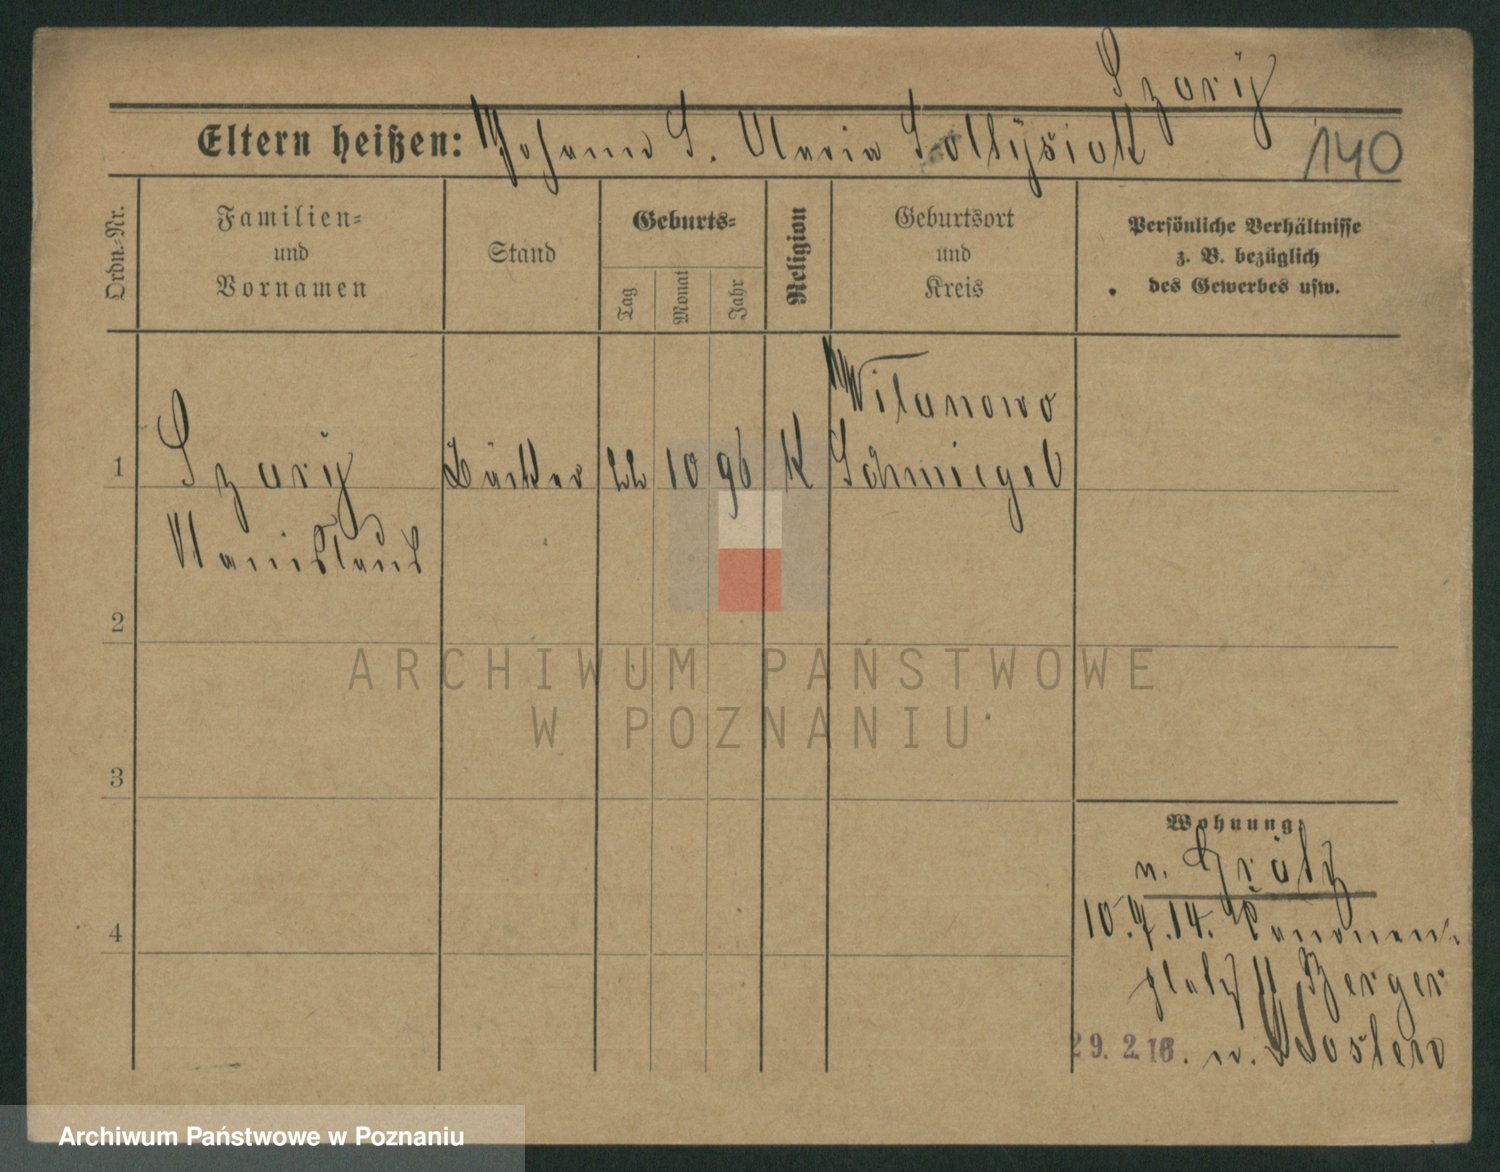 Szary
Eltern heißen: Johann S. Maria Sołtysiak
140
Ordn.-Nr.
Familien- und Vornamen
Stand
Geburts-
Tag
Monat
Jahr
Religion
Geburtsort und Kreis
Persönliche Verhältnisse
z. B. bezüglich
des Gewerbes usw.
Wilanowo
1 Szary Bäcker 22 10 96 K Schmiegel
Stanislaus
2
ARCHIWUM PAŃSTWOWE
W POZNANIU
3
Wohnung:
v. Grätz
10.7.14. Kanonen-
4
platz 11 Berger
29. 2. 16. n. Kosten
Archiwum Państwowe w Poznaniu